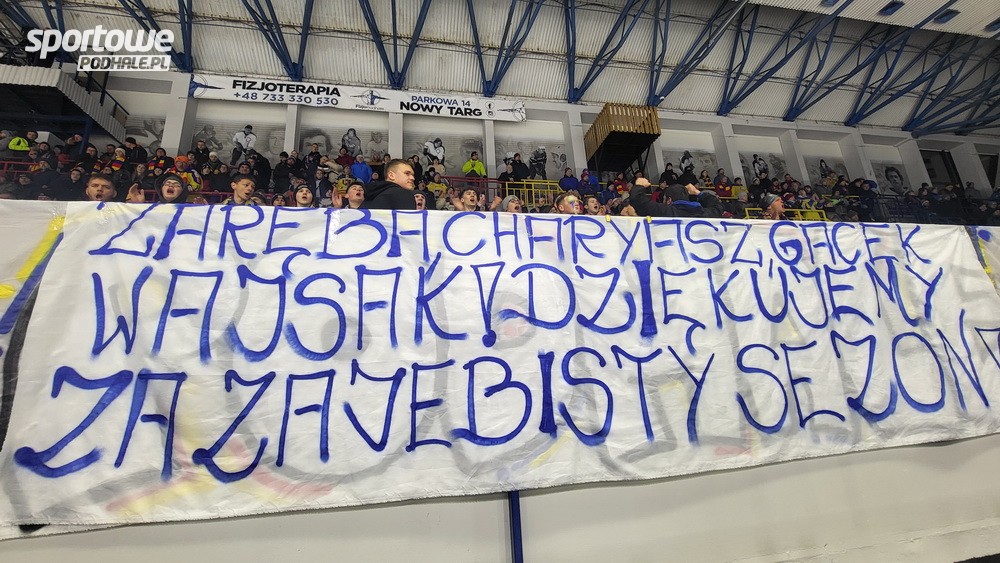 sportowe
PODHALE.PL
FIZJOTERAPIA
+48 733 330 530
PARKOWA 14
NOWY TARG
ZARĘBA CHARYJASZ, GACEK
WAJSAK! DZIĘKUJEMY
ZA ZAJEBISTY SEZON